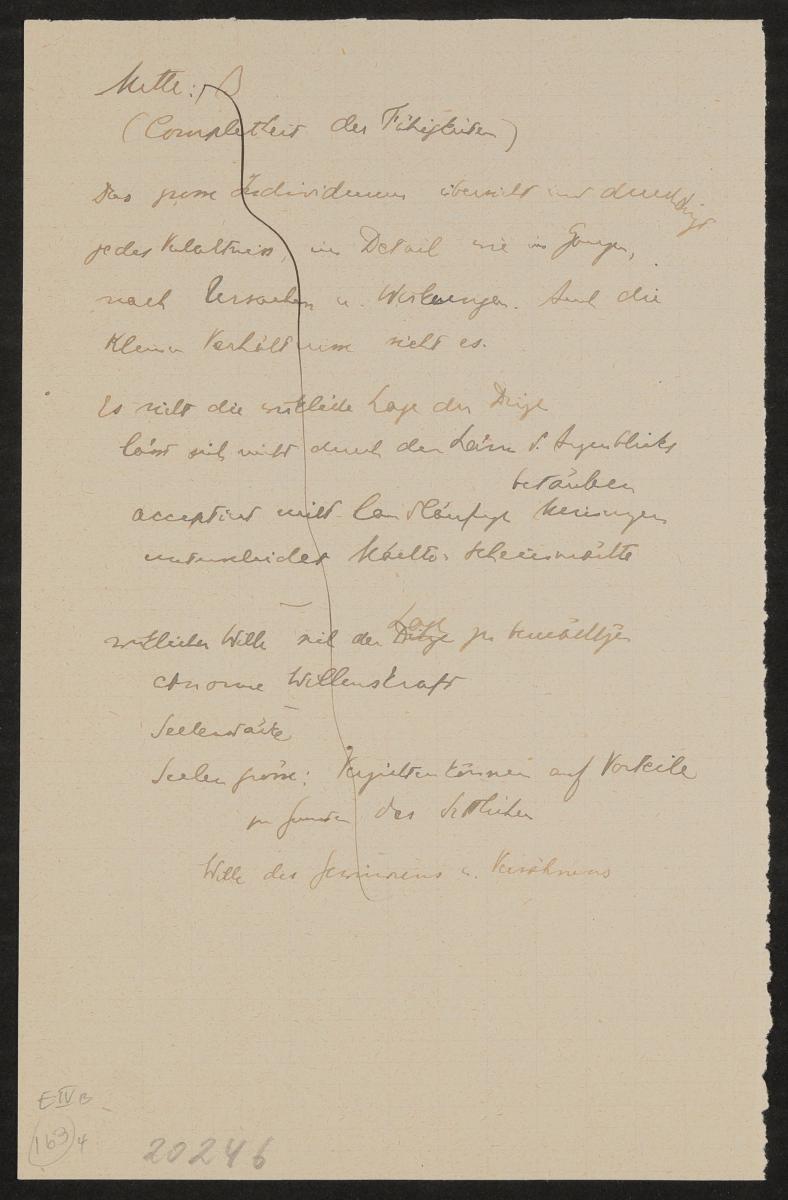 Mitte: B
(Completheit der Fähigkeiten)
Das grosse Individuum übersieht und durchdringt
jedes Verhältniss, im Detail wie im Ganzen,
nach Ursachen u. Wirkungen. Auch die
kleinen Verhältnisse sieht es.
Es sieht die wirkliche Lage der Dinge
lässt sich nicht durch den Lärm d. Augenblicks
betäuben
acceptirt nicht landläufige Meinungen
unterscheidet Scheinmächte
wirklicher Wille sich der Lage zu bemächtigen
abnorme Willenskraft
Seelenstärke
Seelengrösse: Verzichten können auf Vorteile
zu Gunsten des Sittlichen
Wille des Gewinnens u. Versöhnens
E IV B
163 4
20246